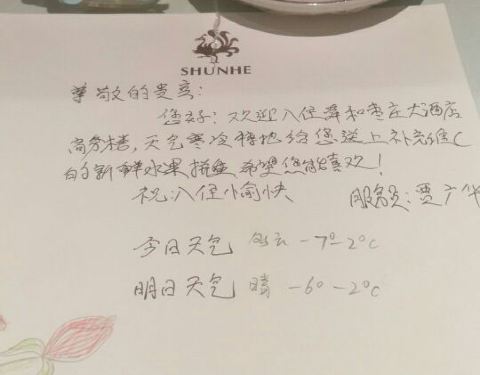 SHUNHE
尊敬的贵宾:
您好!欢迎入住舜和枣庄大酒店
商务楼,天气寒冷特地给您送上补充维C
的新鲜水果拼盘希望您能喜欢!
祝入住愉快 服务员:贾广华
今日天气 多云 -7°-2°C
明日天气 晴 -6°-2°C